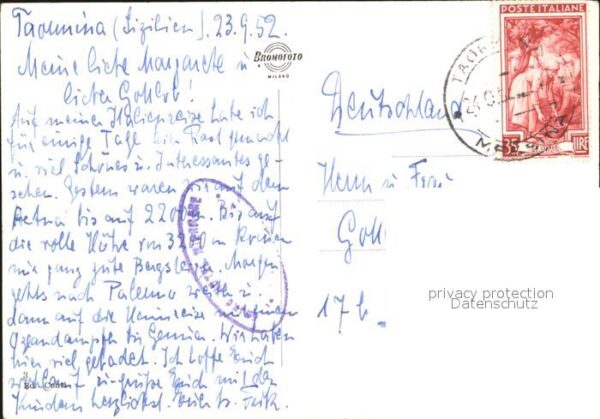 Taormina (Sizilien). 23.9.52.
Meine liebe Margarete u.
lieber Gottlob!
Auf meiner Italienreise habe ich
für einige Tage hier Rast gemacht
u. viel Schönes u. Interessantes ge-
sehen. Gestern waren wir auf dem
Aetna bis auf 2200 m. Bis auf
die volle Höhe von 3200 m können
nur ganz gute Bergsteiger. Morgen
gehts nach Palermo weiter u.
dann auf die Heimreise mit einem
Ozeandampfer bis Genua. Wir haben
hier viel gebadet. Ich hoffe Euch
u. grüße Euch mit den
Kindern herzlichst. Euer Fritz.
Bromofoto
MILANO
POSTE ITALIANE
35 LIRE
Deutschland
Herrn u. Frau
Gott
17b
privacy protection
Datenschutz